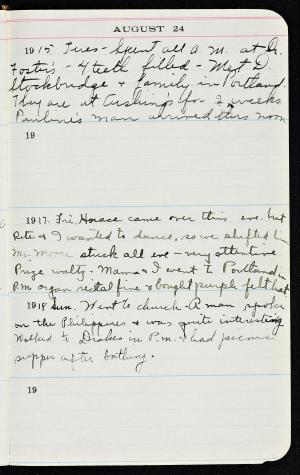 AUGUST 24
1915 Tues - Spent all a.m. at Dr.
Foster's - 4 teeth filled - Met D.
Stockbridge & family in Portland.
They are at Cushing's for 2 weeks
Pauline's mama arrived this noon
19
1917. Fri. Horace came over this eve. but
Rita & I wanted to dance, so we shifted him
Mr. Moore stuck all eve - very attentive
Prize waltz. - Mama & I went to Portland in
P.m. organ recital fine & bought purple felt hat
1918 Sun. Went to church - A man spoke
on the Philippines & was quite interesting
Walked to Drakes in P.m. & had picnic
supper after bathing.
19